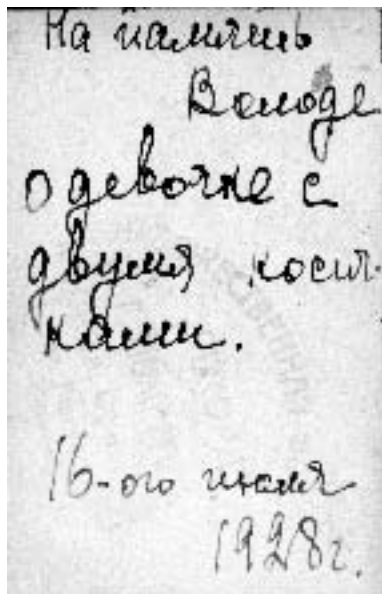 На память
Володе
о девочке с
двумя косич-
ками.
16-ого июля
1928г.